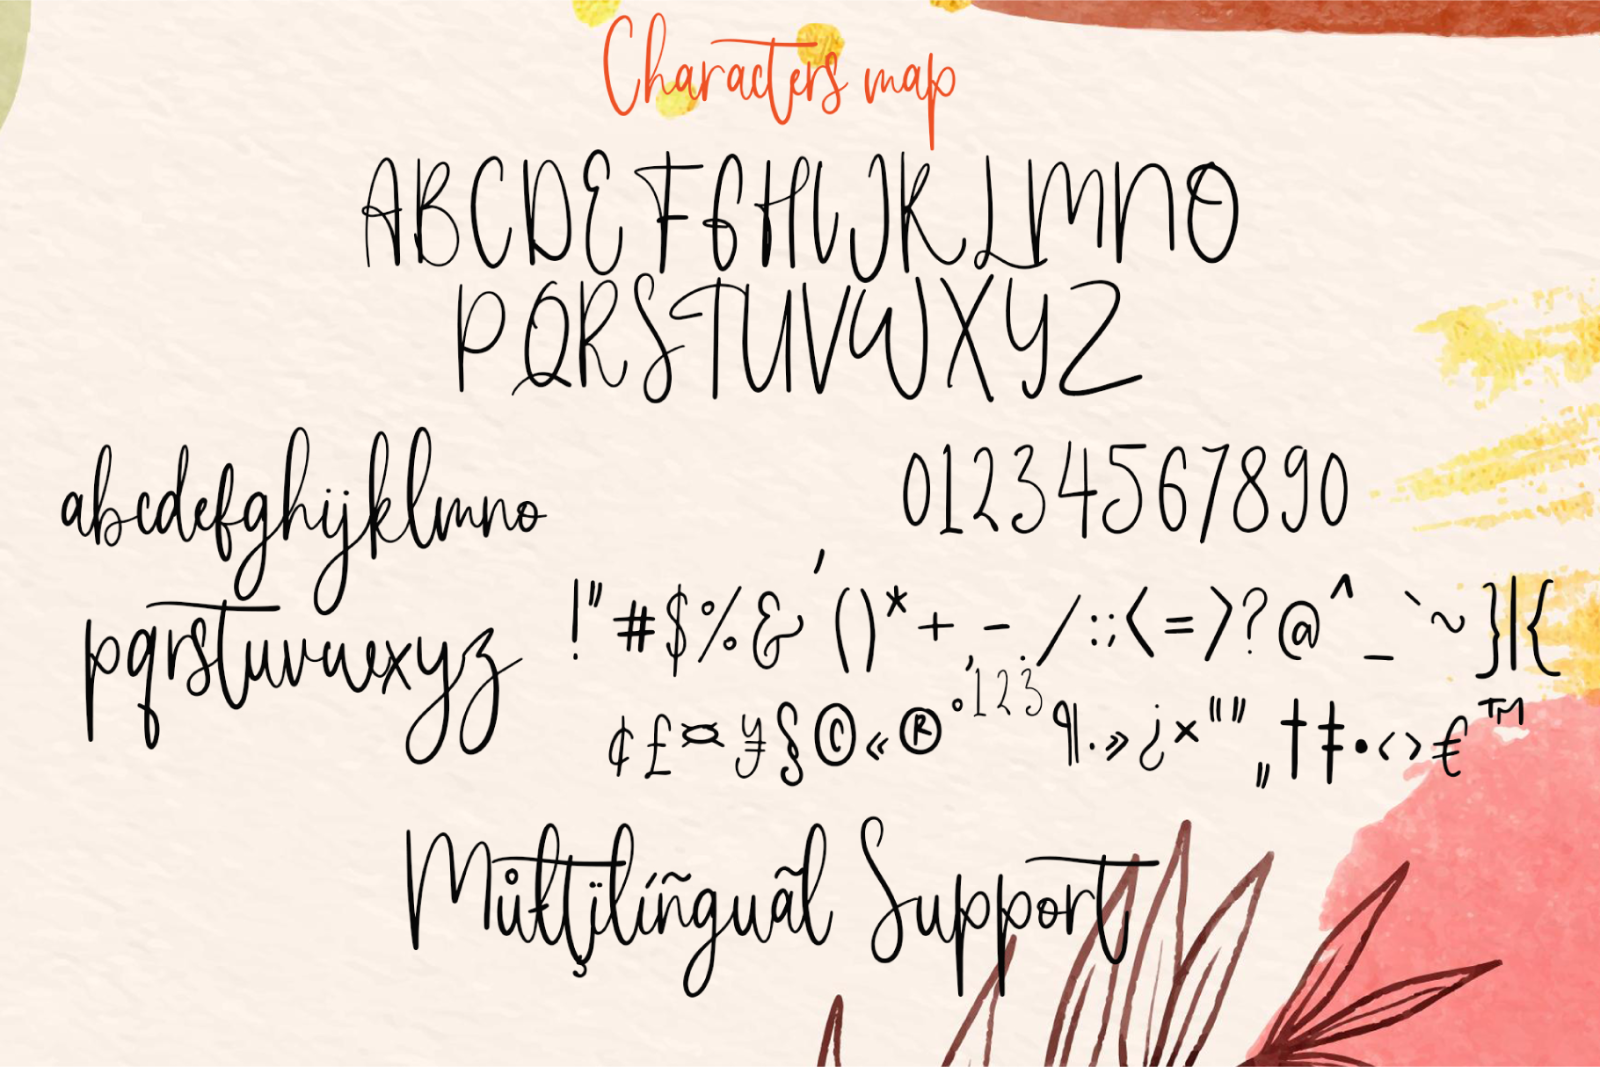 Characters map
ABCDEFGHIJKLMNO
PQRSTUVWXYZ
abcdefghijklmno
pqrstuvwxyz
01234567890
!"#$%&'()*+,-./:;<=>?@^_`~}|{
¢£¤¥§©«®°123¶·»¿×""„†‡•‹›€™
Můłţïlíñguãl Support